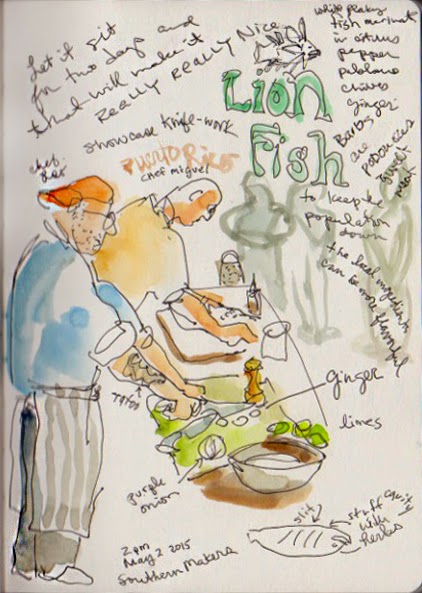 Let it sit
for two days and
that will make it
REALLY REALLY Nice
showcase knife-work
PUERTO RICO
chef miguel
LION
FISH
white flakey
fish marinat
in citrus
pepper
poblano
chives
ginger
Barbs
are
poisonous
sweet
meat
to keep the
population
down
the local ingredients
can be more flavorful
TATOO
GINGER
limes
purple
onion
2 pm
May 2 2015
Southern Makers
slit
stuff cavity
with
herbs